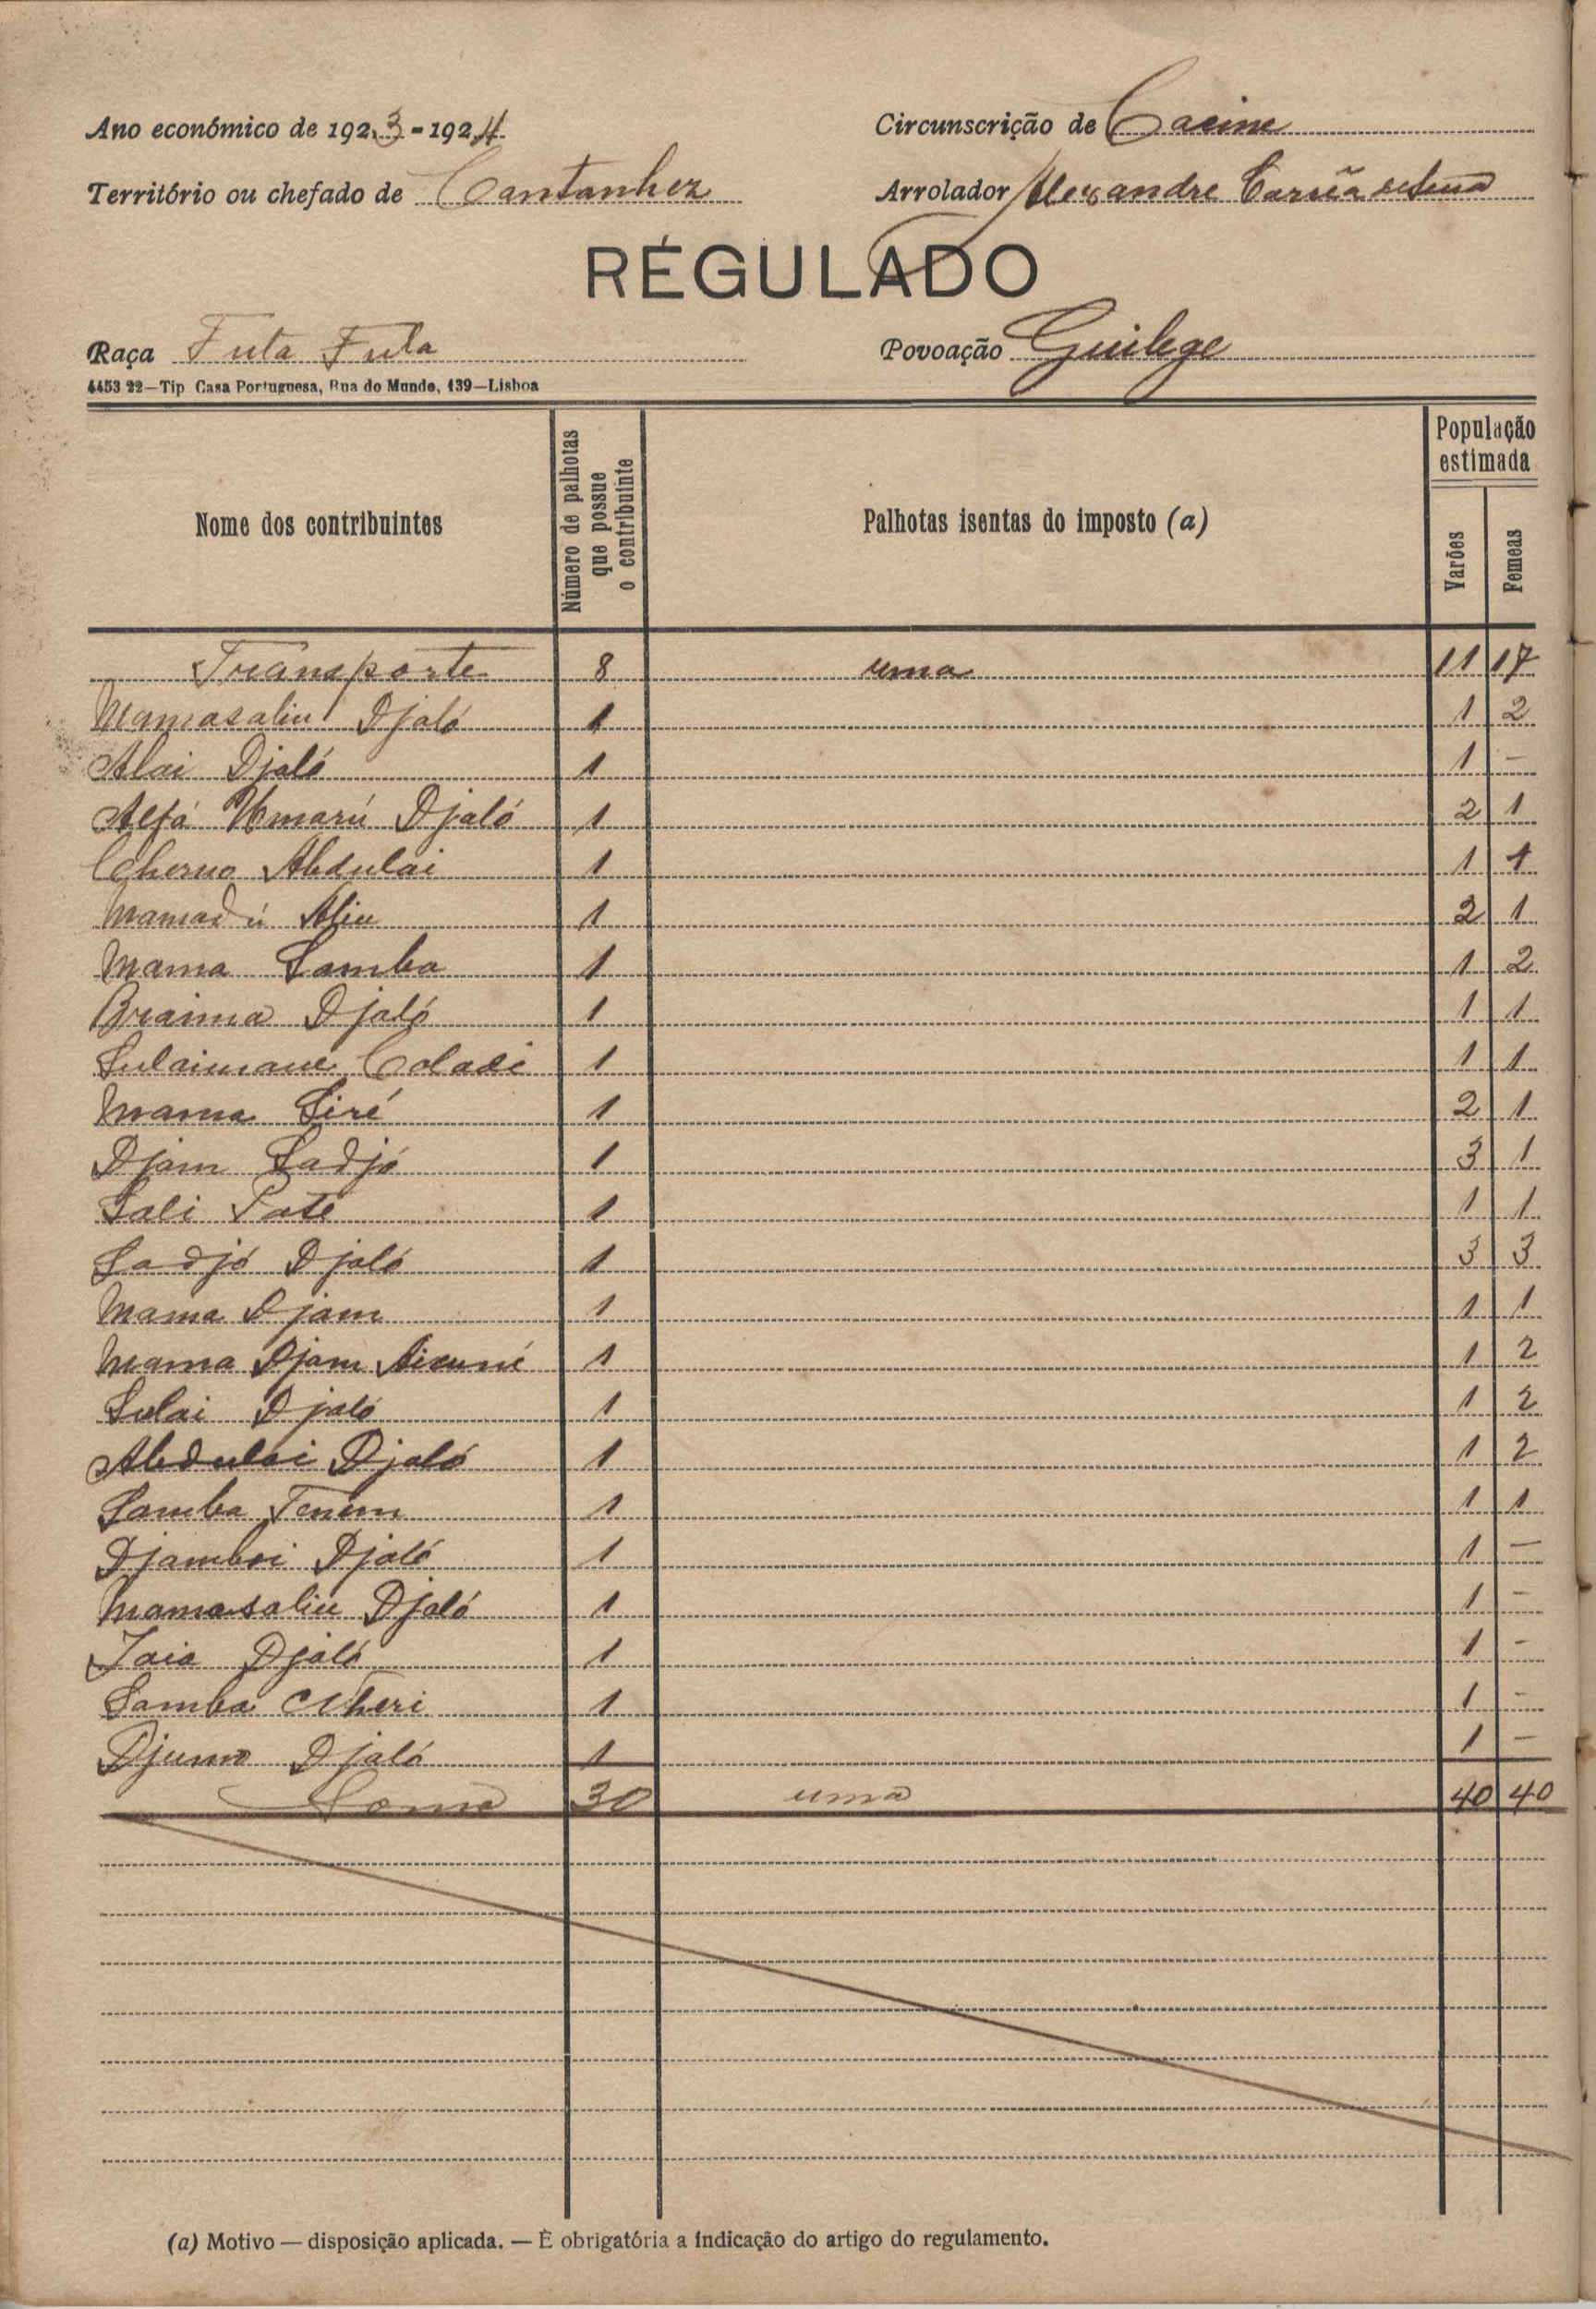 Ano económico de 1923-1924
Circunscrição de Cacine
Território ou chefado de Cantanhez
Arrolador Alexandre Corrêa de Sena
RÉGULADO
Raça Futa Fula
Povoação Guilege
4453 22—Tip. Casa Portuguesa, Rua do Mundo, 139—Lisboa
Nome dos contribuintes
Número de palhotas que possue o contribuinte
Palhotas isentas do imposto (a)
População estimada
Varões
Femeas
Transporte 8 uma 11 17
Mamasaliu Djaló 1 1 2
Alai Djaló 1 1 -
Alfá Umarú Djaló 1 2 1
Cherno Abdulai 1 1 1
Mamadú Aliu 1 2 1
Mama Samba 1 1 2
Braima Djaló 1 1 1
Sulaimane 1 1 1
Mama Siré 1 2 1
Djam Sadjó 1 3 1
Sali Paté 1 1 1
Sadjó Djaló 1 3 3
Mama Djam 1 1 1
Mama Djam 1 1 2
Sulai Djaló 1 1 2
Abdulai Djaló 1 1 2
Samba Tenem 1 1 1
Djamboi Djaló 1 1 -
Mamasaliu Djaló 1 1 -
Jaia Djaló 1 1 -
Samba 1 1 -
Djumo Djaló 1 1 -
Soma 30 uma 40 40
(a) Motivo — disposição aplicada. — É obrigatória a indicação do artigo do regulamento.